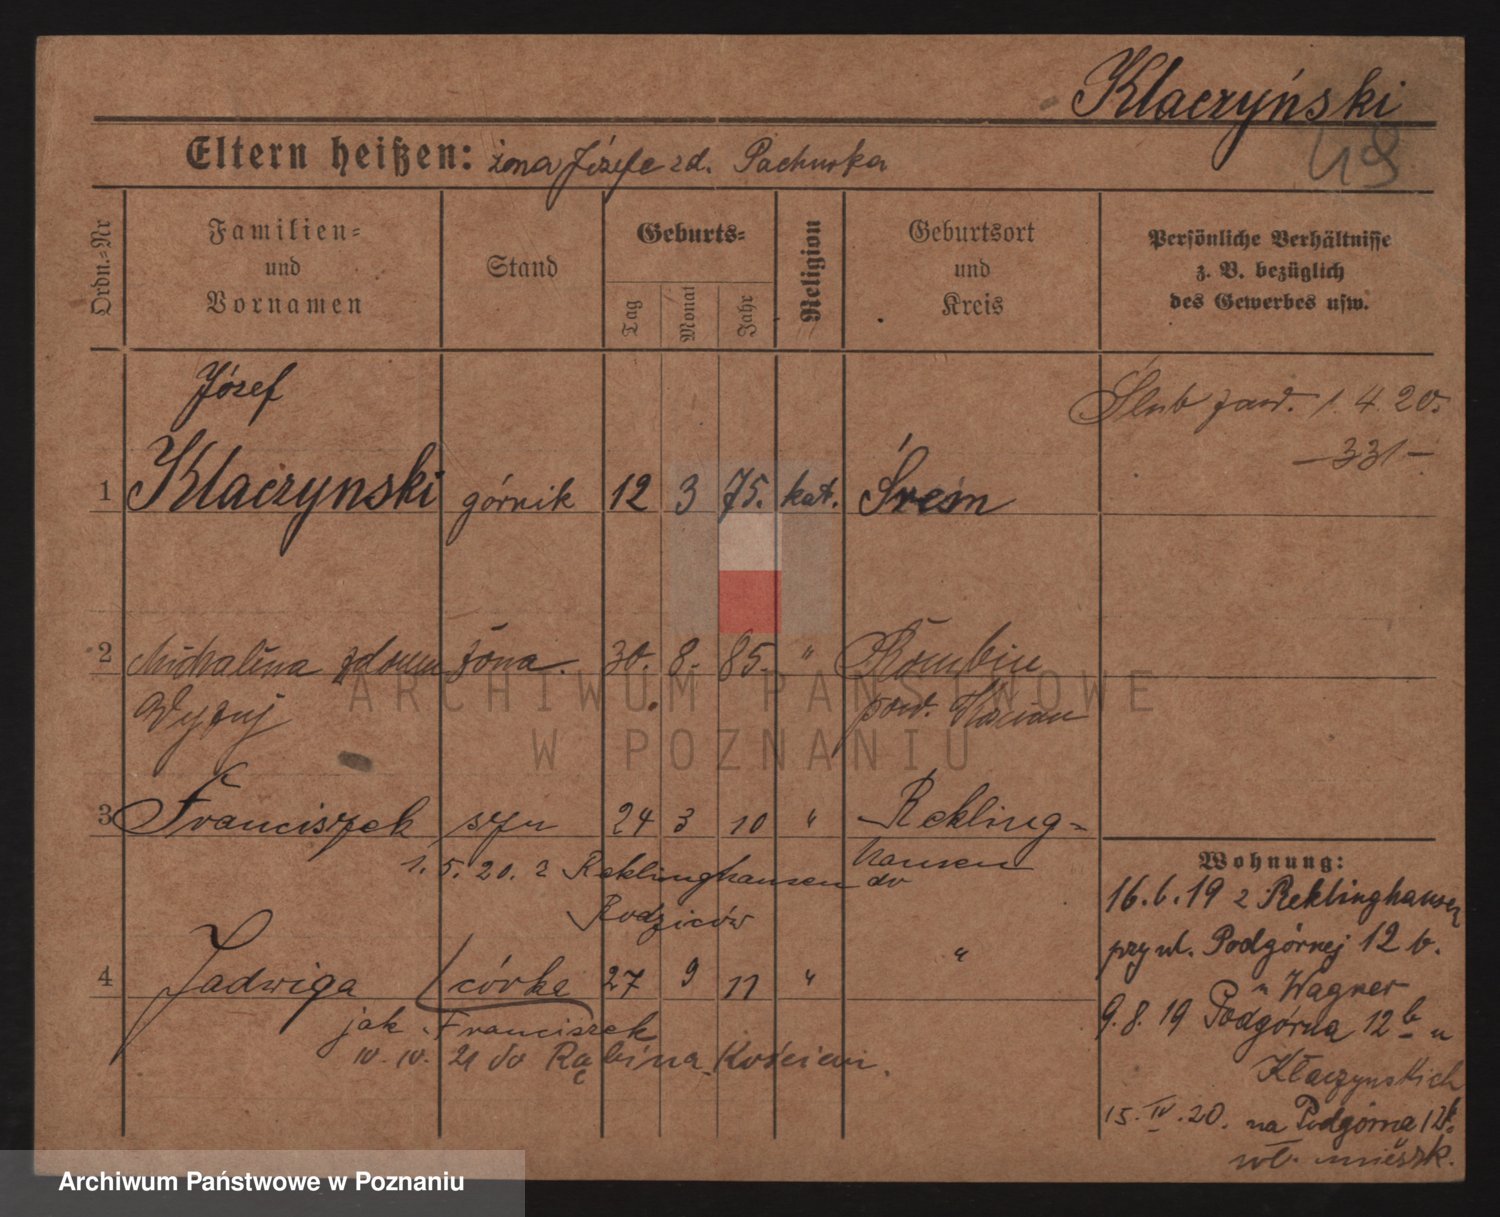 Klaczyński
49
Eltern heißen: żona Józefe zd. Pachurka
Ordn.-Nr
Familien-
und
Vornamen
Stand
Geburts-
Tag
Monat
Jahr
Religion
Geburtsort
und
Kreis
Persönliche Verhältnisse
z. B. bezüglich
des Gewerbes usw.
Józef
Ślub zaw. 1. 4. 20.
—331—
1 Klaczynski górnik 12 3 75. kat. Śrem
2 Michalina żona. 30. 8. 85. "
pow.
3 Franciszek syn 24 3 10 " Rekling-
hausen
1. 5. 20. z Reklinghausen do
Rodziców
4 Jadwiga córka 27 9 11 " "
jak Franciszek
10. IV. 21 do Rąbina Kościan.
Wohnung:
16. 6. 19 z Reklinghausen
przy ul. Podgórnej 12 b.
u Wagner
9. 8. 19 Podgórna 12 b u
Kłaczynskich
15. IV. 20. na Podgórna 12b.
wł. mieszk.
ARCHIWUM PAŃSTWOWE
W POZNANIU
Archiwum Państwowe w Poznaniu